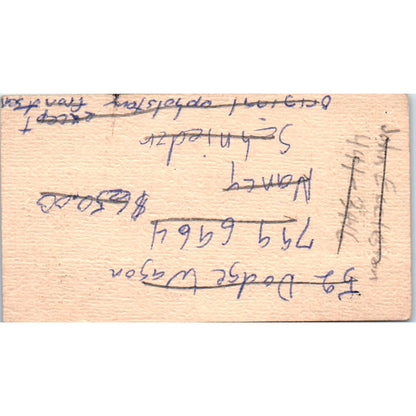 52 Dodge
Wagon
799 6964
$650.00
Nancy
Schnieder
original upholstery
except
front seat
John